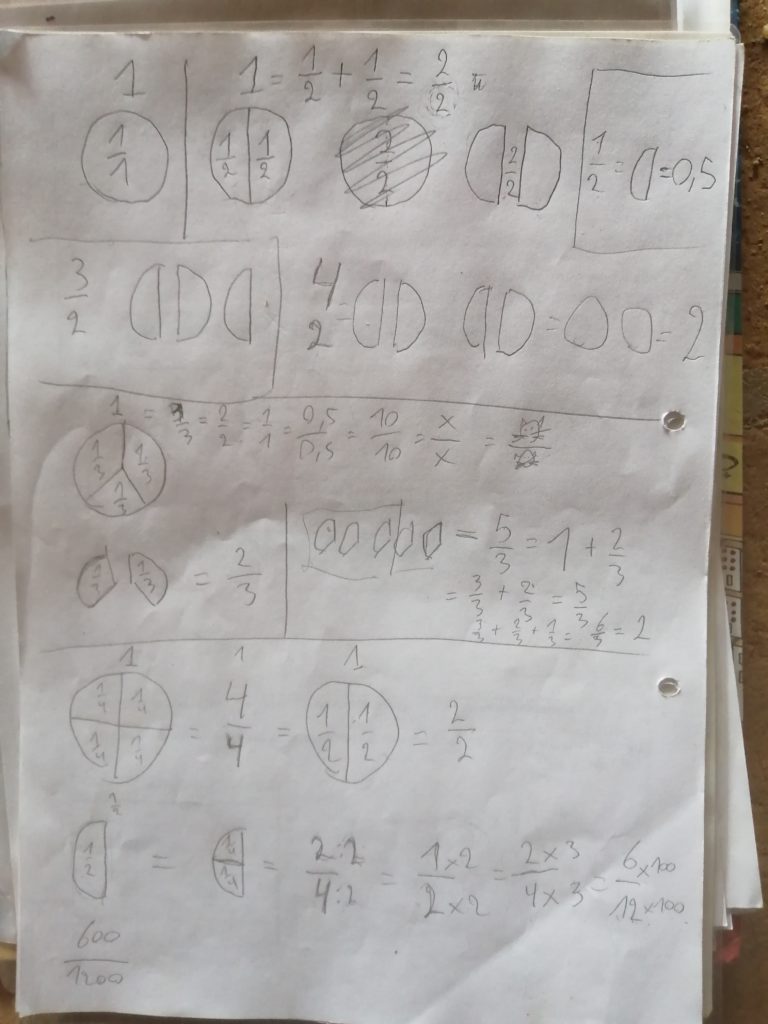 1 1 = 1/2 + 1/2 = 2/2
1/1 1/2 1/2 2/2 2/2 1/2 = = 0,5
3/2 4/2 = = = 2
1 = /3 = 2/2 = 1/1 = 0,5/0,5 = 10/10 = x/x =
1/3 1/3 1/3
= 5/3 = 1 + 2/3
1/3 1/3 = 2/3
= 3/3 + 2/3 = 5/3
3/3 + 2/3 + 1/3 = 6/3 = 2
1 1 1
1/4 1/4 1/4 1/4 = 4/4 = 1/2 1/2 = 2/2
1/2
1/2 = 1/4 1/4 = 2:2/4:2 = 1x2/2x2 = 2x3/4x3 = 6x100/12x100
600/1200